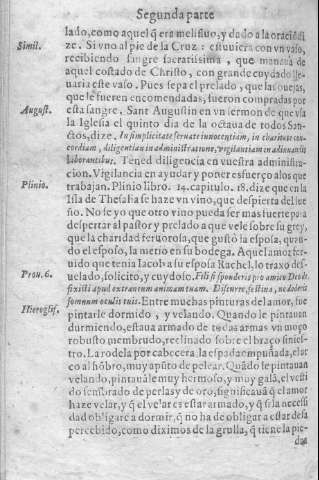 Segunda parte
lado, como aquel q̃ era melifluo, y dado a la oraciõ di
ze. Si vno al pie de la Cruz: estuuiera con vn vaso,
Simil.
recibiendo sangre sacratissima, que manaua de
aquel costado de Christo, con grande cuydado lle-
uaria este vaso. Pues sepa el prelado, que las ouejas,
que le fueren encomendadas, fueron compradas por
esta sangre. Sant Augustin en vn sermon de que vsa
August.
la Iglesia el quinto dia de la octaua de todos San-
ctos, dize. In simplicitate seruate innocentiam, in charitate con-
cordiam, diligentiam in administratione, vigilantiam in adiuuandis
laborantibus. Tened diligencia en vuestra administra-
cion. Vigilancia en ayudar y poner esfuerço a los que
trabajan. Plinio libro. 14. capitulo. 18. dize que en la
Plinio.
Isla de Thesalia se haze vn vino, que despierta del sue
ño. No se yo que otro vino pueda ser mas fuerte para
despertar al pastor y prelado a que vele sobre su grey,
que la charidad feruorosa, que gustò la esposa, quan-
do el esposo, la metio en su bodega. Aquel amor fer-
uido que tenia Iacob a su esposa Rachel, lo traxo des-
uelado, solicito, y cuydoso. Fili si sponderis pro amico
Prou. 6.
fixisti apud extraneum animam tuam. Discurre, festina, ne dederis
somnum oculis tuis. Entre muchas pinturas del amor, fue
Hieroglif.
pintarle dormido, y velando. Quando le pintauan
durmiendo, estaua armado de todas armas vn moço
robusto, membrudo, reclinado sobre el braço sinies-
tro. La rodela por cabecera, la espada empuñada, el or
co al hõbro, muy apũto de pelear. Quãdo le pintauan
velando, pintauãle muy hermoso, y muy galã, el vesti
do sembrado de perlas y de oro, significauã q̃ el amor
haze velar, y q̃ el velar es estar armado, y q̃ si la necessi
dad obligare a dormir, q̃ no ha de obligar a estar desa
percebido, como diximos de la grulla, q̃ tiene la pie-
dra